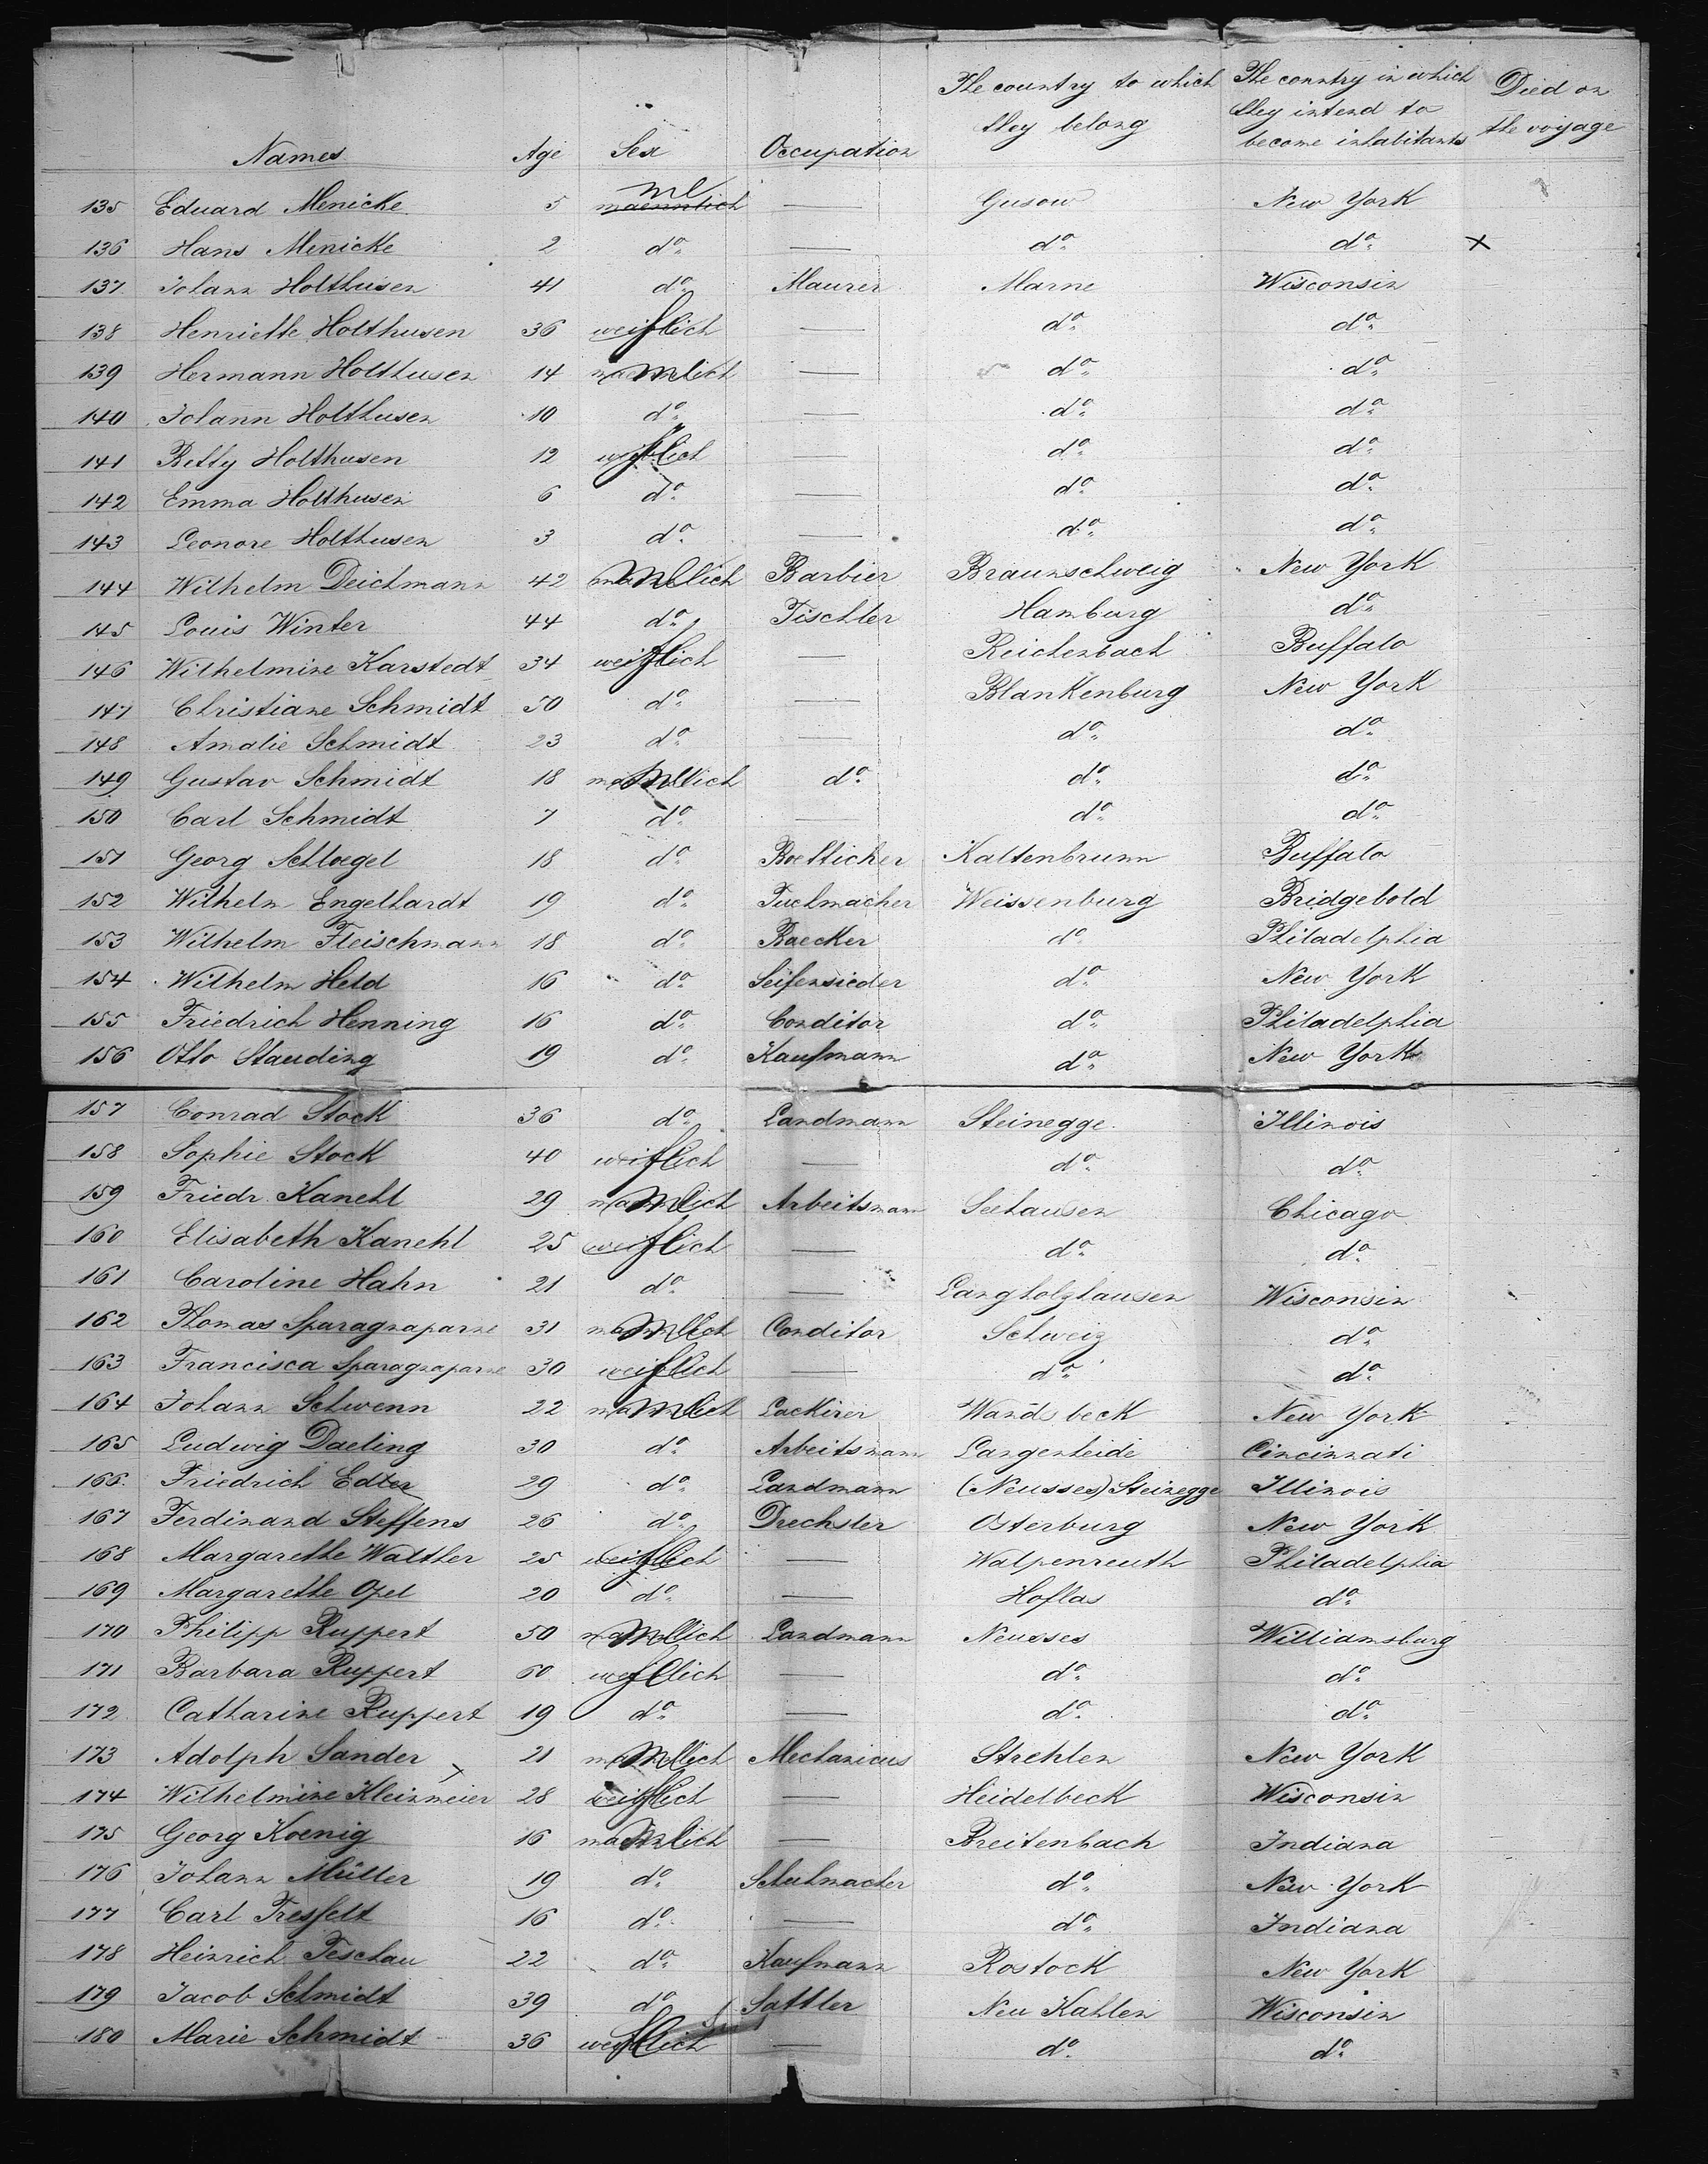 Names Age Sex Occupation The country to which they belong The country in which they intend to become inhabitants Died on the voyage
135 Eduard Menicke 5 maennlich ml — Gusow New York
136 Hans Menicke 2 do — do do x
137 Johann Holthusen 41 do Maurer Marne Wisconsin
138 Henriette Holthusen 36 weiblich — do do
139 Hermann Holthusen 14 maennlich — do do
140 Johann Holthusen 10 do — do do
141 Betty Holthusen 12 weiblich — do do
142 Emma Holthusen 6 do — do do
143 Leonore Holthusen 3 do — do do
144 Wilhelm Deichmann 42 maennlich Barbier Braunschweig New York
145 Louis Winter 44 do Tischler Hamburg do
146 Wilhelmine Karstedt 34 weiblich — Reichenbach Buffalo
147 Christiane Schmidt 50 do — Blankenburg New York
148 Amalie Schmidt 23 do — do do
149 Gustav Schmidt 18 maennlich do do do
150 Carl Schmidt 7 do — do do
151 Georg Schloegel 18 do Boetticher Kaltenbrunn Buffalo
152 Wilhelm Engelhardt 19 do Tuchmacher Weissenburg Bridgebold
153 Wilhelm Fleischmann 18 do Baecker do Philadelphia
154 Wilhelm Held 16 do Seifensieder do New York
155 Friedrich Henning 16 do Conditor do Philadelphia
156 Otto Stauding 19 do Kaufmann do New York
157 Conrad Stock 36 do Landmann Steinegge Illinois
158 Sophie Stock 40 weiblich — do do
159 Friedr. Kanehl 29 maennlich Arbeitsmann Seehausen Chicago
160 Elisabeth Kanehl 25 weiblich — do do
161 Caroline Hahn 21 do — Langholzhausen Wisconsin
162 Thomas Sparagnapane 31 maennlich Conditor Schweiz do
163 Francisca Sparagnapane 30 weiblich — do do
164 Johann Schwenn 22 maennlich Lackirer Wandsbeck New York
165 Ludwig Daeling 30 do Arbeitsmann Langenheide Cincinnati
166 Friedrich Edler 29 do Landmann (Neusses) Steinegge Illinois
167 Ferdinand Steffens 26 do Drechsler Osterburg New York
168 Margarethe Walther 25 weiblich — Walpenreuth Philadelphia
169 Margarethe Opel 20 do — Hoflas do
170 Philipp Ruppert 50 maennlich Landmann Neusses Williamsburg
171 Barbara Ruppert 60 weiblich — do do
172 Catharine Ruppert 19 do — do do
173 Adolph Sander 21 maennlich Mechanicus Strehlen New York
174 Wilhelmine Kleinmeier x 28 weiblich — Heidelbeck Wisconsin
175 Georg Koenig 16 maennlich — Breitenbach Indiana
176 Johann Müller 19 do Schuhmacher do New York
177 Carl Tresselt 16 do — do Indiana
178 Heinrich Teschau 22 do Kaufmann Rostock New York
179 Jacob Schmidt 39 do Sattler Neu Kahlen Wisconsin
180 Marie Schmidt 36 weiblich — do do